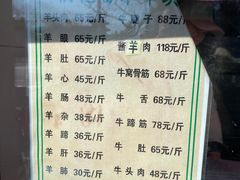 羊头肉 65元/斤
羊 眼 65元/斤
羊 肚 65元/斤
羊 心 45元/斤
羊 肠 48元/斤
羊 杂 38元/斤
羊 蹄 36元/斤
羊 肝 36元/斤
羊 肺 30元/斤
子 68元/斤
酱羊肉 118元/斤
牛窝骨筋 68元/斤
牛 舌 68元/斤
牛蹄筋 78元/斤
牛 肚 65元/斤
牛头肉 48元/斤